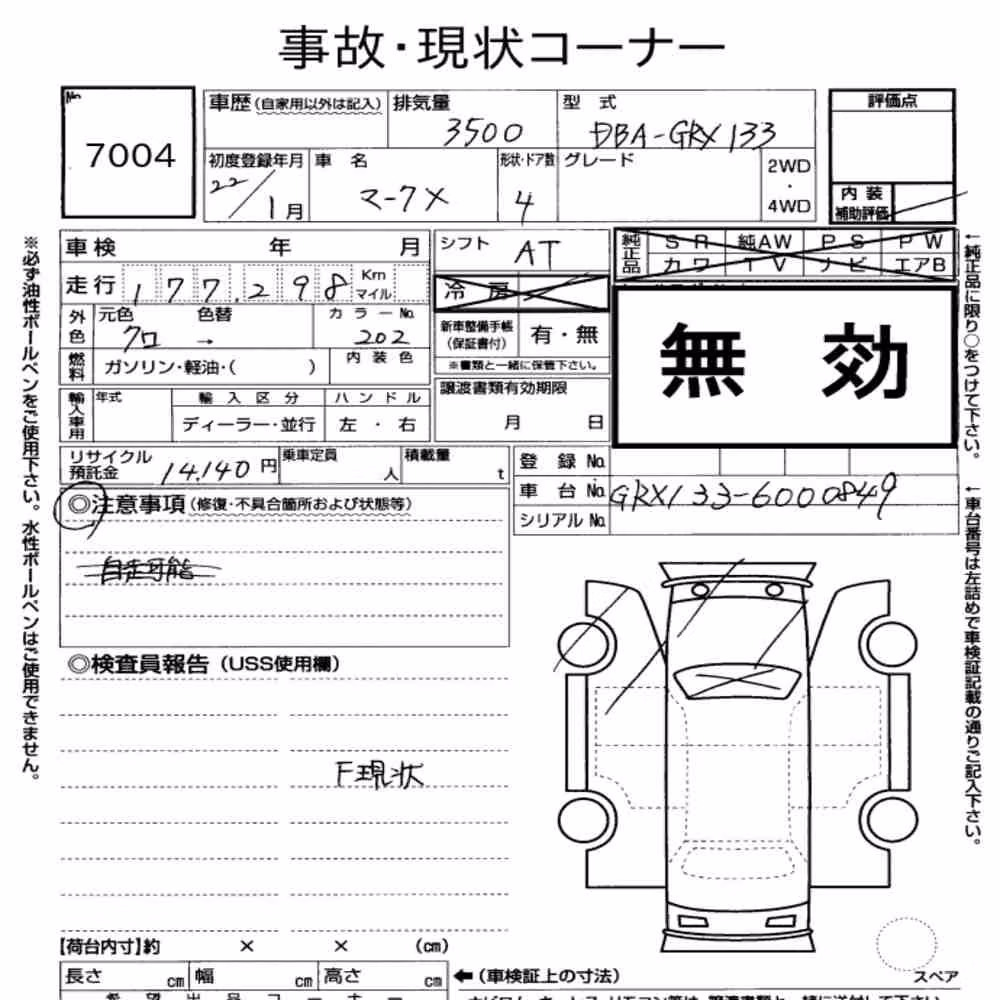 事故・現状コーナー
No
7004
車歴(自家用以外は記入)
排気量
3500
型式
DBA-GRX133
評価点
初度登録年月
22/1月
車名
マークX
形状・ドア数
4
グレード
2WD
・
4WD
内装
補助評価
車検 年 月
シフト AT
純正品
SR 純AW PS PW
カワ TV ナビ エアB
走行 177,298 Km マイル
冷房
外色
元色 色替 カラーNo.
クロ → 202
新車整備手帳
(保証書付)
有・無
※書類と一緒に保管下さい。
無効
燃料
ガソリン・軽油・( )
内装色
譲渡書類有効期限
月 日
輸入車用
年式
輸入区分
ハンドル
ディーラー・並行
左・右
リサイクル
預託金
14,140円
乗車定員
人
積載量
t
登録No.
車台No. GRX133-6000849
シリアルNo.
◎注意事項(修復・不具合箇所および状態等)
自走可能
◎検査員報告(USS使用欄)
F現状
【荷台内寸】約 × × (cm)
長さ cm 幅 cm 高さ cm
←(車検証上の寸法)
スペア
希望出品コーナー
※必ず油性ボールペンをご使用下さい。水性ボールペンはご使用できません。
←純正品に限り○をつけて下さい。
←車台番号は左詰めで車検証記載の通りご記入下さい。